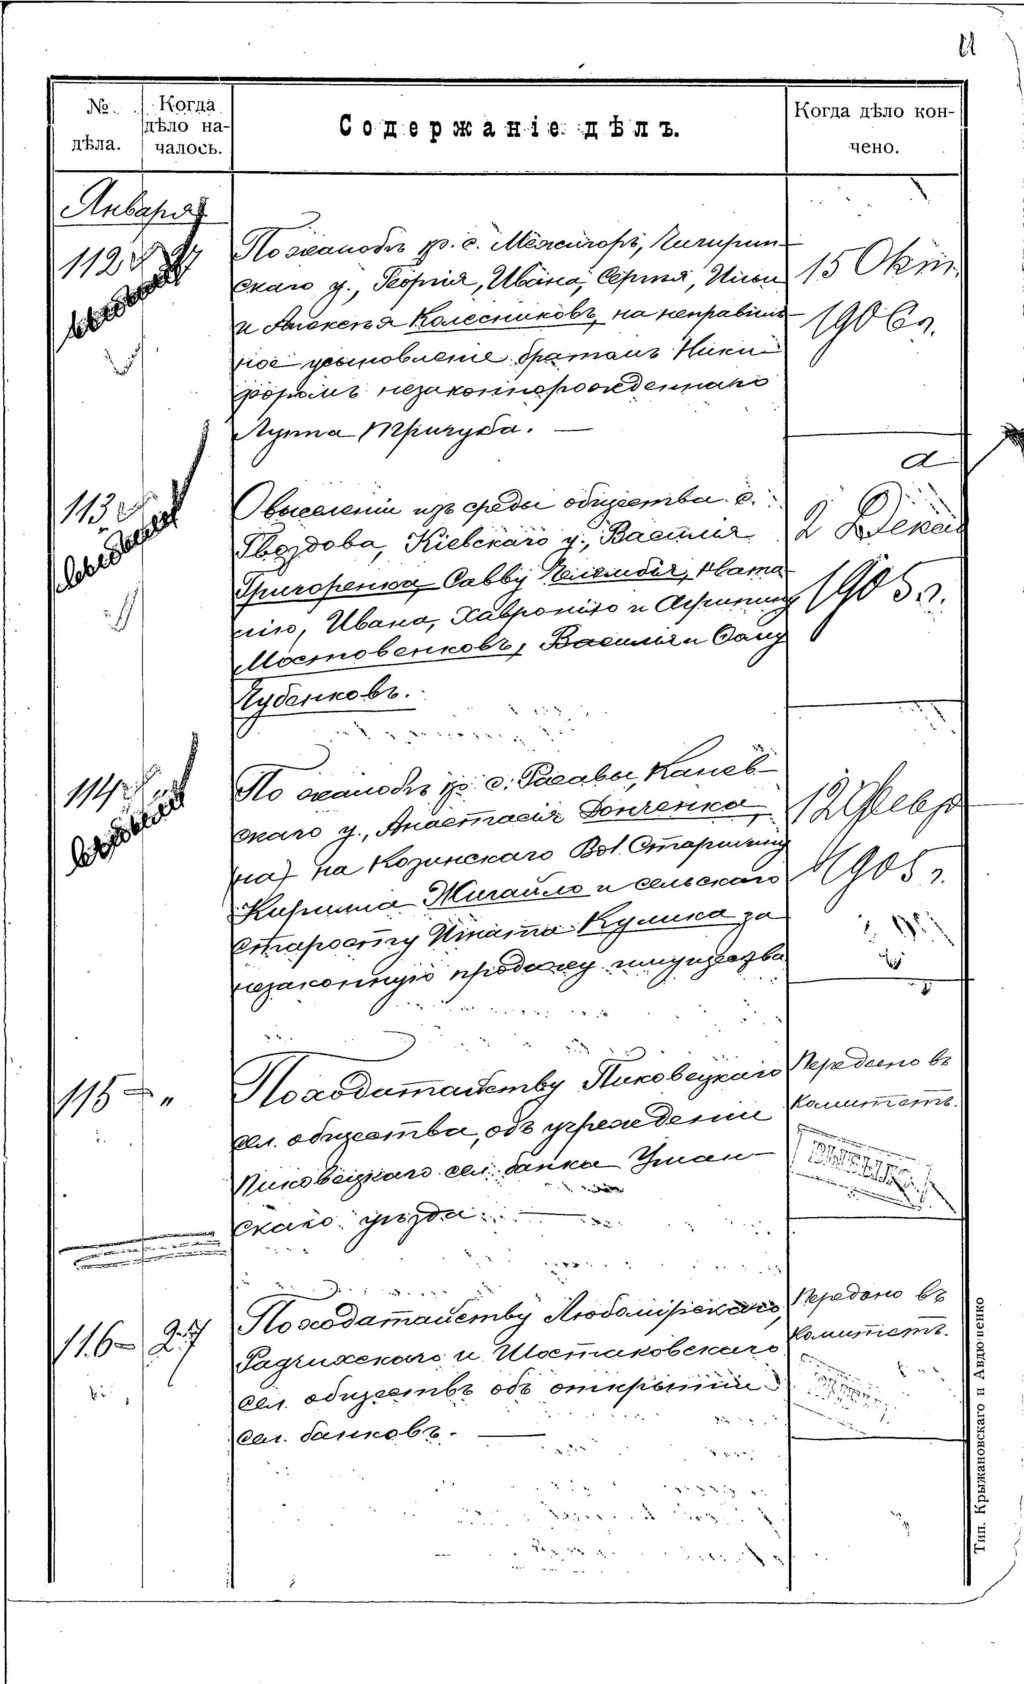 11
№ дѣла.
Когда дѣло началось.
Содержаніе дѣлъ.
Когда дѣло кончено.
Января
112 27
По жалобѣ кр. с. Межигоръ, Чигирин-
скаго у., Георгія, Ивана, Сергѣя, Ильи
и Алексѣя Колесниковъ, на неправиль-
ное усыновленіе братомъ Ники-
форомъ незаконнорожденнаго
Луппа Тричуба. —
15 Окт.
1906 г.
113
О выселеніи изъ среды общества с.
Гвоздова, Кіевскаго у., Василія
Григоренка, Савву, Ната-
лію, Ивана, Хавронію и Агрипину
Мостовенковъ, Василія и Ѳому
Чубенковъ.
2 Декаб
1905 г.
114
По жалобѣ кр. с. Расавы, Канев-
скаго у., Анастасія Донченка,
(на) на Козинскаго Вол. Старшину
Кирилла Жигайло и сельскаго
старосту Игната Кулика за
незаконную продажу имущества
12 Февр
1905 г.
115 — "
По ходатайству Пиковецкаго
сел. общества, объ учрежденіи
Пиковецкаго сел. банка Уман-
скаго уѣзда. —
Передано въ
Комитетъ.
ВЫБЫЛО
116 — 27
По ходатайству Любомірскаго,
Радчихскаго и Шостаковскаго
сел. обществъ объ открытіи
сел. банковъ. —
Передано въ
Комитетъ.
Тип. Крыжановскаго и Авдюшенко